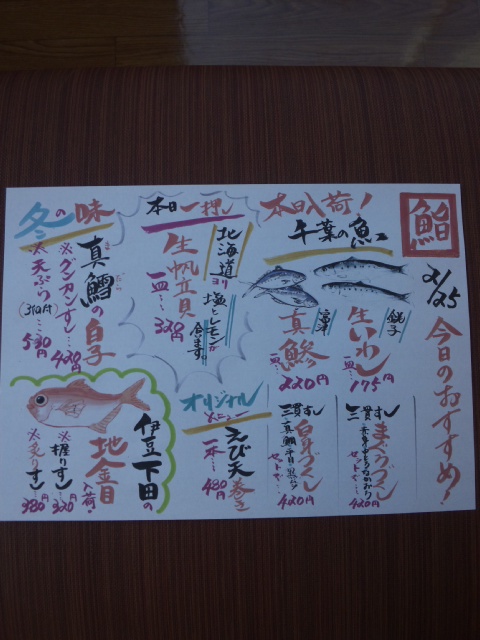 鮨
2/25
今日のおすすめ!
本日入荷!
千葉の魚
銚子
生いわし
一皿…175円
富津
真鯵
一皿…220円
三貫ずし
まぐろづくし
セットで…420円
三貫ずし
白身づくし
セットで…420円
本日一押し
北海道ヨリ
生帆立貝
塩とレモンが合います。
一皿…320円
オリジナルメニュー
えび天巻き
一本…480円
冬の味
真鱈の白子
まだら
※グンカンずし…420円
※天ぷら…530円
伊豆下田の
地金目
入荷・
※握りずし…320円
※炙りずし…380円